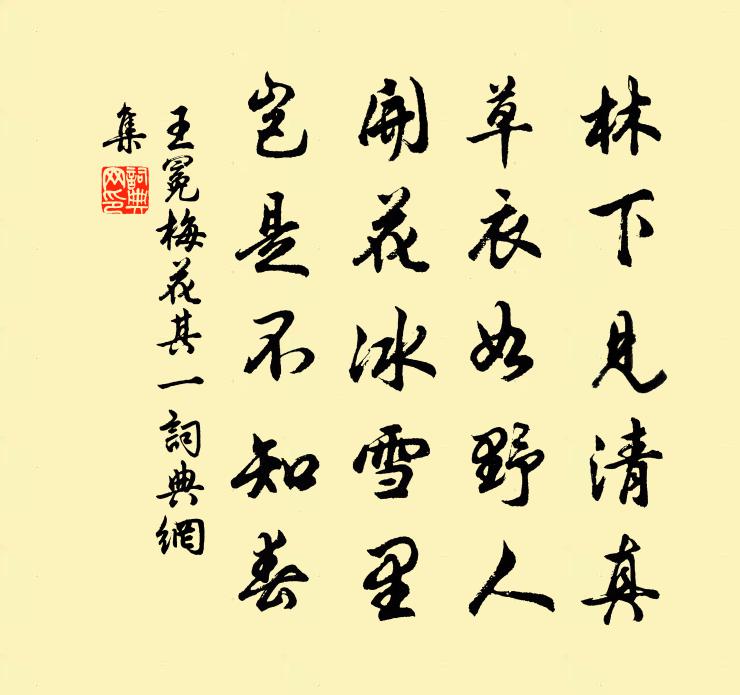 林下見清真
草衣如野人
開花冰雪里
豈是不知春
王冕梅花其一詞典網
集
詞典
网印